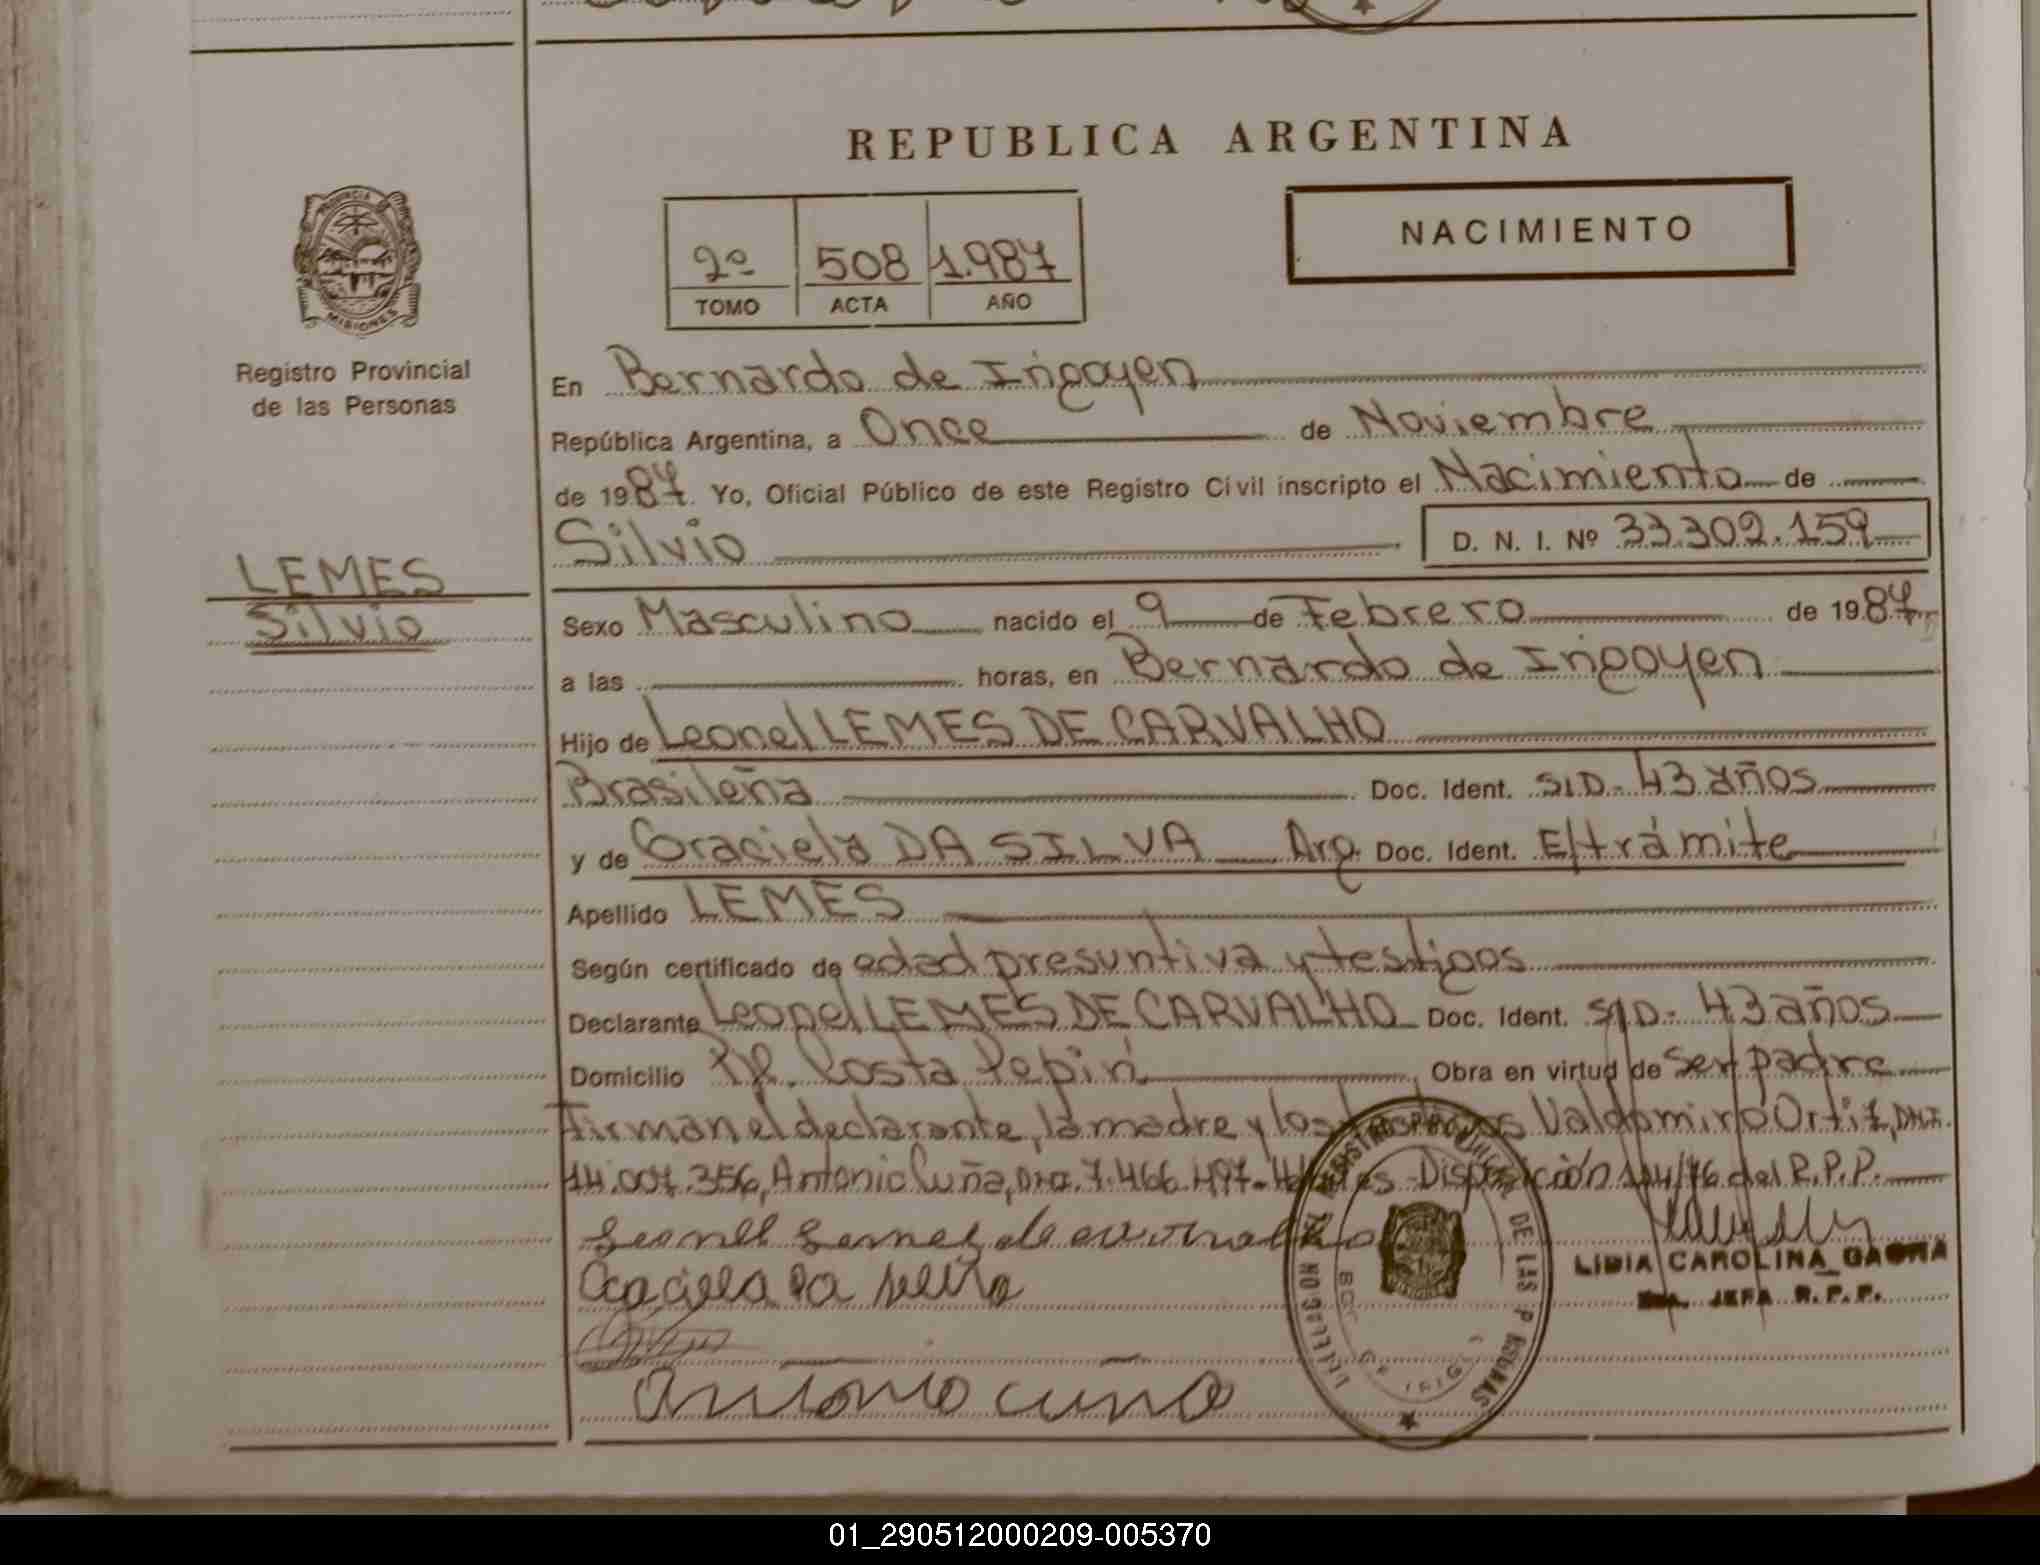 REPUBLICA ARGENTINA
NACIMIENTO
2º 508 1.987
TOMO ACTA AÑO
PROVINCIA DE
MISIONES
Registro Provincial
de las Personas
LEMES
Silvio
En Bernardo de Irigoyen
República Argentina, a Once de Noviembre
de 1987. Yo, Oficial Público de este Registro Civil inscripto el Nacimiento de
Silvio D. N. I. Nº 33.302.159
Sexo Masculino nacido el 9 de Febrero de 1987
a las horas, en Bernardo de Irigoyen
Hijo de Leonel LEMES DE CARVALHO
Brasileña Doc. Ident. S/D.- 43 años
y de Graciela DA SILVA Arg. Doc. Ident. E/trámite
Apellido LEMES
Según certificado de edad presuntiva y testigos
Declarante Leonel LEMES DE CARVALHO Doc. Ident. S/D.- 43 años
Domicilio Costa Pepirí Obra en virtud de ser padre
Firman el declarante, la madre y los testigos Valdomiro Ortiz, DNI.
14.007.356, Antonio Cuña, 7.466.497.- Disposición 114/76 del R.P.P.
Leonel Lemes de Carvalho
Graciela Da Silva
Antonio Cuña
LIDIA CAROLINA GAONA
JEFA R. P. P.
DELEGACION DEL REGISTRO PROVINCIAL DE LAS PERSONAS
01_290512000209-005370